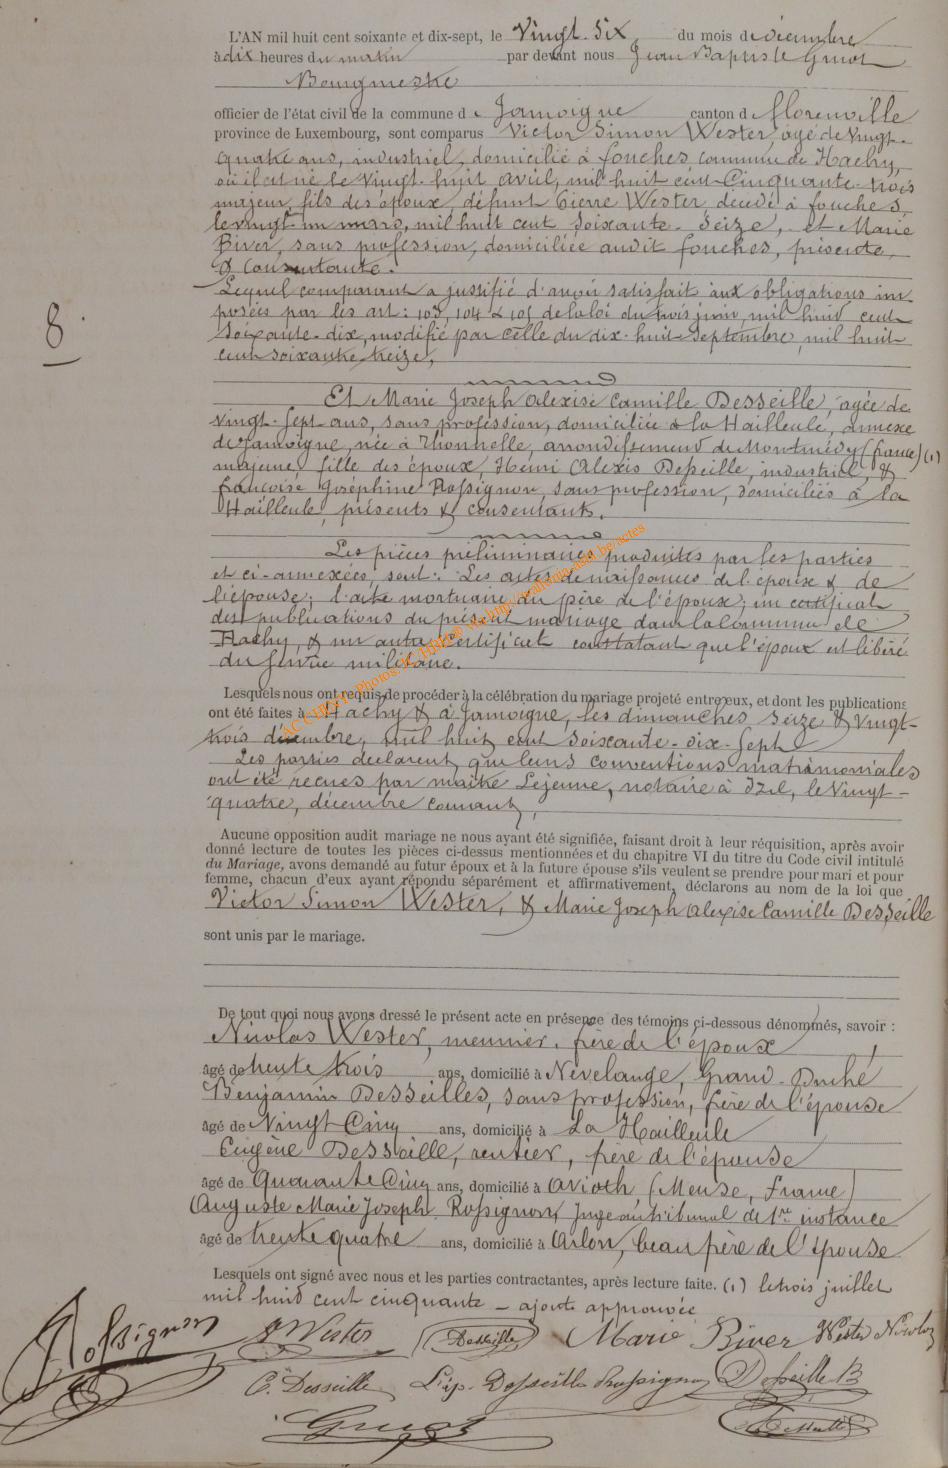 L'AN mil huit cent soixante et dix-sept, le Vingt-Six du mois de décembre
à dix heures du matin par devant nous Jean Baptiste
Bourgmestre
officier de l'état civil de la commune de Jamoigne canton de florenville
province de Luxembourg, sont comparus Victor Simon Wester, âgé de Vingt-
quatre ans, industriel, domicilié à fouches commune de Hachy,
où il est né le Vingt-huit avril, mil huit cent Cinquante-trois
majeur, fils des époux, défunt Pierre Wester décédé à fouches
le vingt un mars, mil huit cent Soixante-Seize, et Marie
Biver, sans profession, domiciliée audit fouches, présente,
& consentante.
Lequel comparant a justifié d'avoir satisfait aux obligations im-
posées par les art: 103, 104 & 105 de la loi du trois juin, mil huit cent
Soixante-dix, modifié par celle du dix-huit Septembre, mil huit
cent soixante treize,
8.
Et Marie Joseph Alexise Camille Desseille, agée de
vingt-sept ans, sans profession, domiciliée à la Hailleule, annexe
de Jamoigne, née à Thonnelle, arrondissement de Montmédy (france) (1)
majeure, fille des époux, Henri Alexis Desseille, industriel, &
françoise Joséphine Rossignon, sans profession, domiciliés à la
Hailleule, présents & consentants.
Les pièces préliminaires produites par les parties
et ci-annexées, sont: Les actes de naissances de l'époux & de
l'épouse; l'acte mortuaire du père de l'époux; un certificat
des publications du présent mariage dans la commune de
Hachy, & un autre certificat constatant que l'époux est libéré
du service militaire.
Lesquels nous ont requis de procéder à la célébration du mariage projeté entre eux, et dont les publications
ont été faites à Hachy & à Jamoigne, les dimanches seize & vingt-
trois décembre, mil huit cent soixante-dix-sept
Les parties déclarent que leurs conventions matrimoniales
ont été recues par maître Lejeune, notaire à Izel, le Vingt-
quatre, décembre courant,
Aucune opposition audit mariage ne nous ayant été signifiée, faisant droit à leur réquisition, après avoir
donné lecture de toutes les pièces ci-dessus mentionnées et du chapitre VI du titre du Code civil intitulé
du Mariage, avons demandé au futur époux et à la future épouse s'ils veulent se prendre pour mari et pour
femme, chacun d'eux ayant répondu séparément et affirmativement, déclarons au nom de la loi que
Victor Simon Wester, & Marie Joseph Alexise Camille Desseille
sont unis par le mariage.
De tout quoi nous avons dressé le présent acte en présence des témoins ci-dessous dénommés, savoir :
Nicolas Wester, meunier, frère de l'époux
âgé de trente trois ans, domicilié à Nevelange, Grand-Duché
Benjamin Desseilles, sans profession, frère de l'épouse
âgé de Vingt Cinq ans, domicilié à La Hailleule
Eugène Desseille, rentier, frère de l'épouse
âgé de Quarante Cinq ans, domicilié à Avioth, (Meuse, France)
Auguste Marie Joseph Rossignon, Juge au tribunal de 1re instance
âgé de trente quatre ans, domicilié à Arlon, beau père de l'épouse
Lesquels ont signé avec nous et les parties contractantes, après lecture faite. (1) le trois juillet
mil huit cent cinquante - ajoute approuvée
Rossignon Wester Desseille Marie Biver Wester Nicolas
C. Desseille Desseille Rossignon Desseille B